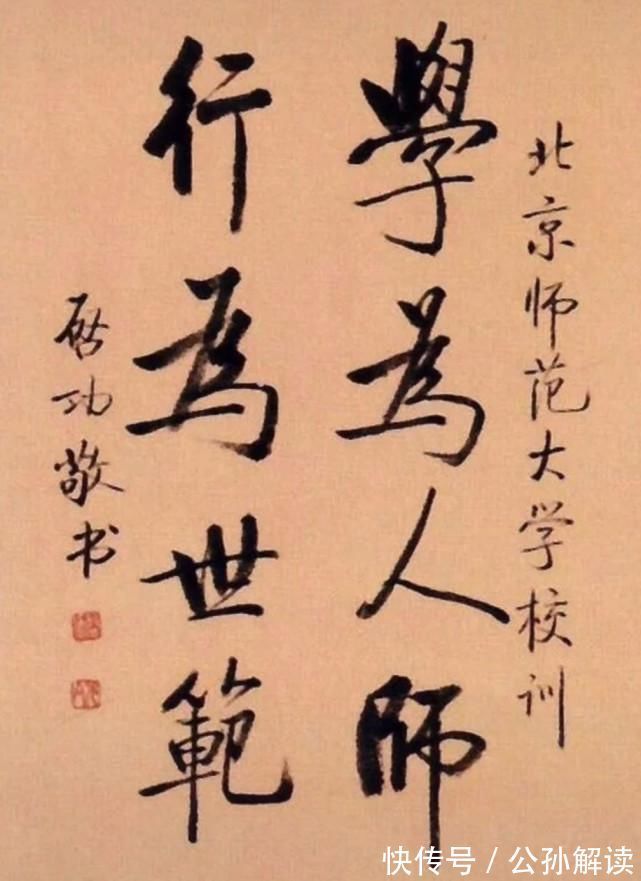 北京师范大学校训
學為人師
行為世範
启功敬书
快传号 / 公孙解读